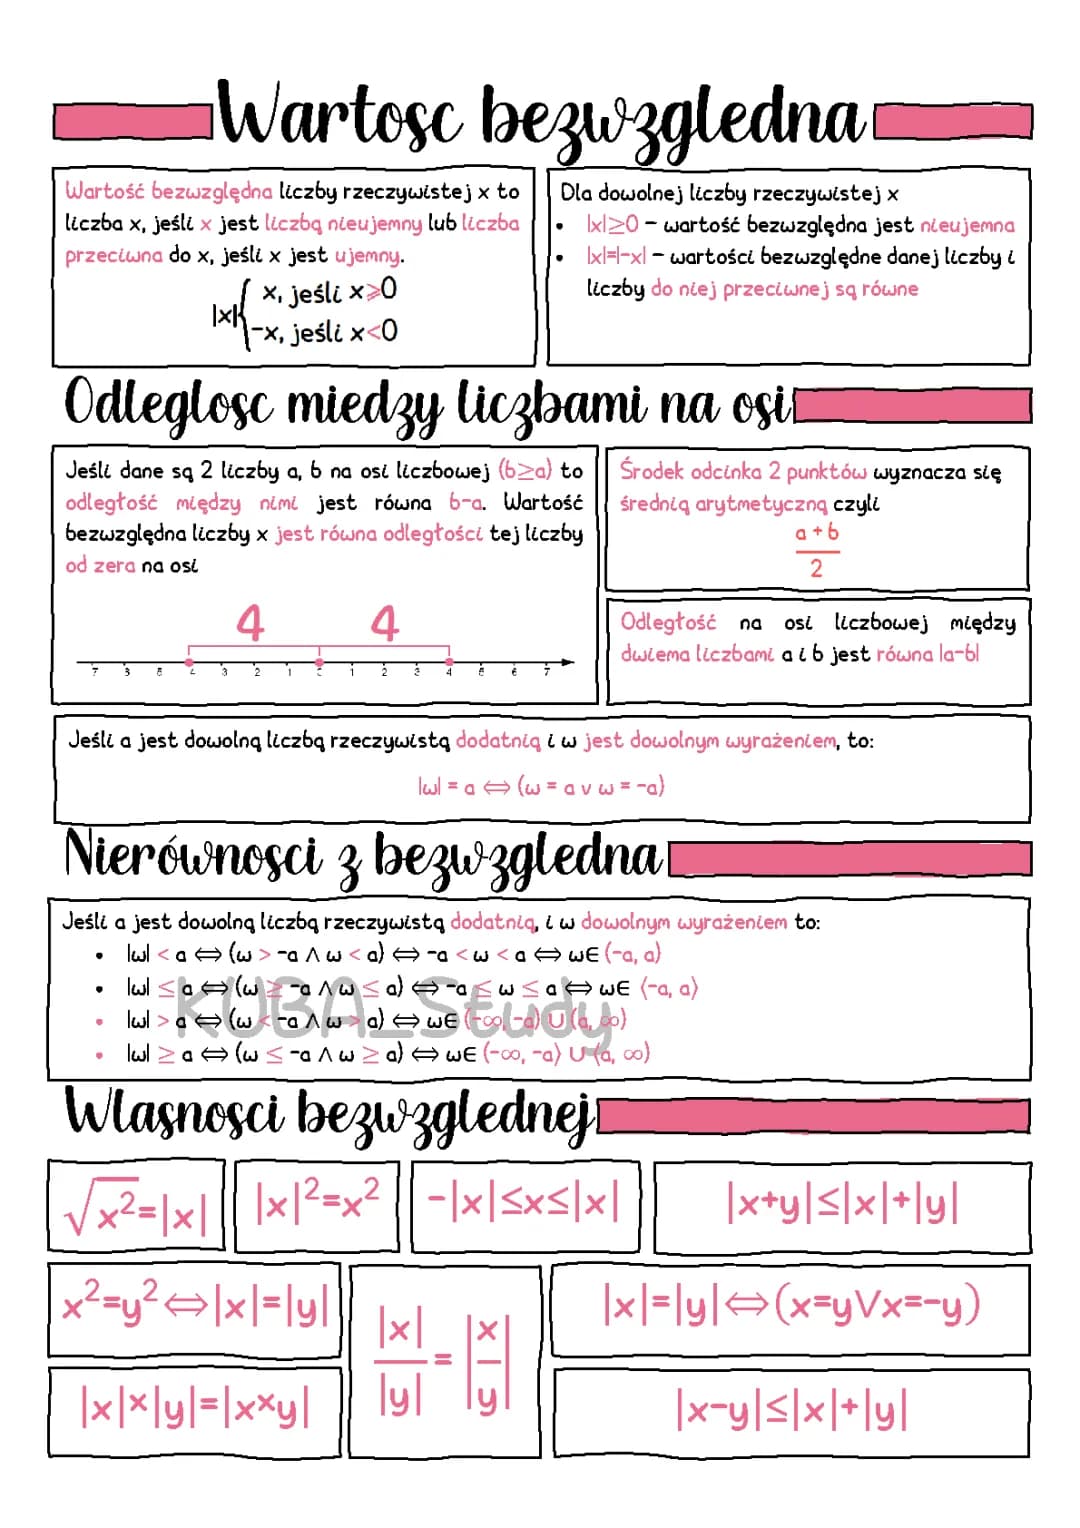 Wartosc bezwzgledna
Wartość bezwzględna liczby rzeczywistej x to
liczba x, jeśli x jest liczbą nieujemny lub liczba
przeciwna do x, jeśli x jest ujemny.
|x|{ x, jeśli x⩾0
-x, jeśli x<0
Dla dowolnej liczby rzeczywistej x
• |x|≥0 - wartość bezwzględna jest nieujemna
• |x|=|-x| - wartości bezwzględne danej liczby i
liczby do niej przeciwnej są równe
Odleglosc miedzy liczbami na osi
Jeśli dane są 2 liczby a, b na osi liczbowej (b≥a) to
odległość między nimi jest równa b-a. Wartość
bezwzględna liczby x jest równa odległości tej liczby
od zera na osi
4 4
3 2 1 1 2 3 4 6 7
Środek odcinka 2 punktów wyznacza się
średnią arytmetyczną czyli
a + b
2
Odległość na osi liczbowej między
dwiema liczbami a i b jest równa |a-b|
Jeśli a jest dowolną liczbą rzeczywistą dodatnią i w jest dowolnym wyrażeniem, to:
|w| = a ⇔ (w = a v w = -a)
Nierówności z bezwzgledna
Jeśli a jest dowolną liczbą rzeczywistą dodatnią, i w dowolnym wyrażeniem to:
• |w| < a ⇔ (w > -a ∧ w < a) ⇔ -a < w < a ⇔ w∈ (-a, a)
• |w| ≤ a ⇔ (w ≥ -a ∧ w ≤ a) ⇔ -a ≤ w ≤ a ⇔ w∈ ⟨-a, a⟩
• |w| > a ⇔ (w < -a ∧ w > a) ⇔ w∈ (-∞, -a) ∪ (a, ∞)
• |w| ≥ a ⇔ (w ≤ -a ∧ w ≥ a) ⇔ w∈ (-∞, -a⟩ ∪ ⟨a, ∞)
KUBA_Study
Wlasnosci bezwzglednej
√x²=|x|
|x|²=x²
-|x|≤x≤|x|
|x+y|≤|x|+|y|
x²=y²⇔|x|=|y|
|x|/|y| = |x/y|
|x|=|y|⇔(x=y∨x=-y)
|x|×|y|=|x×y|
|x-y|≤|x|+|y|